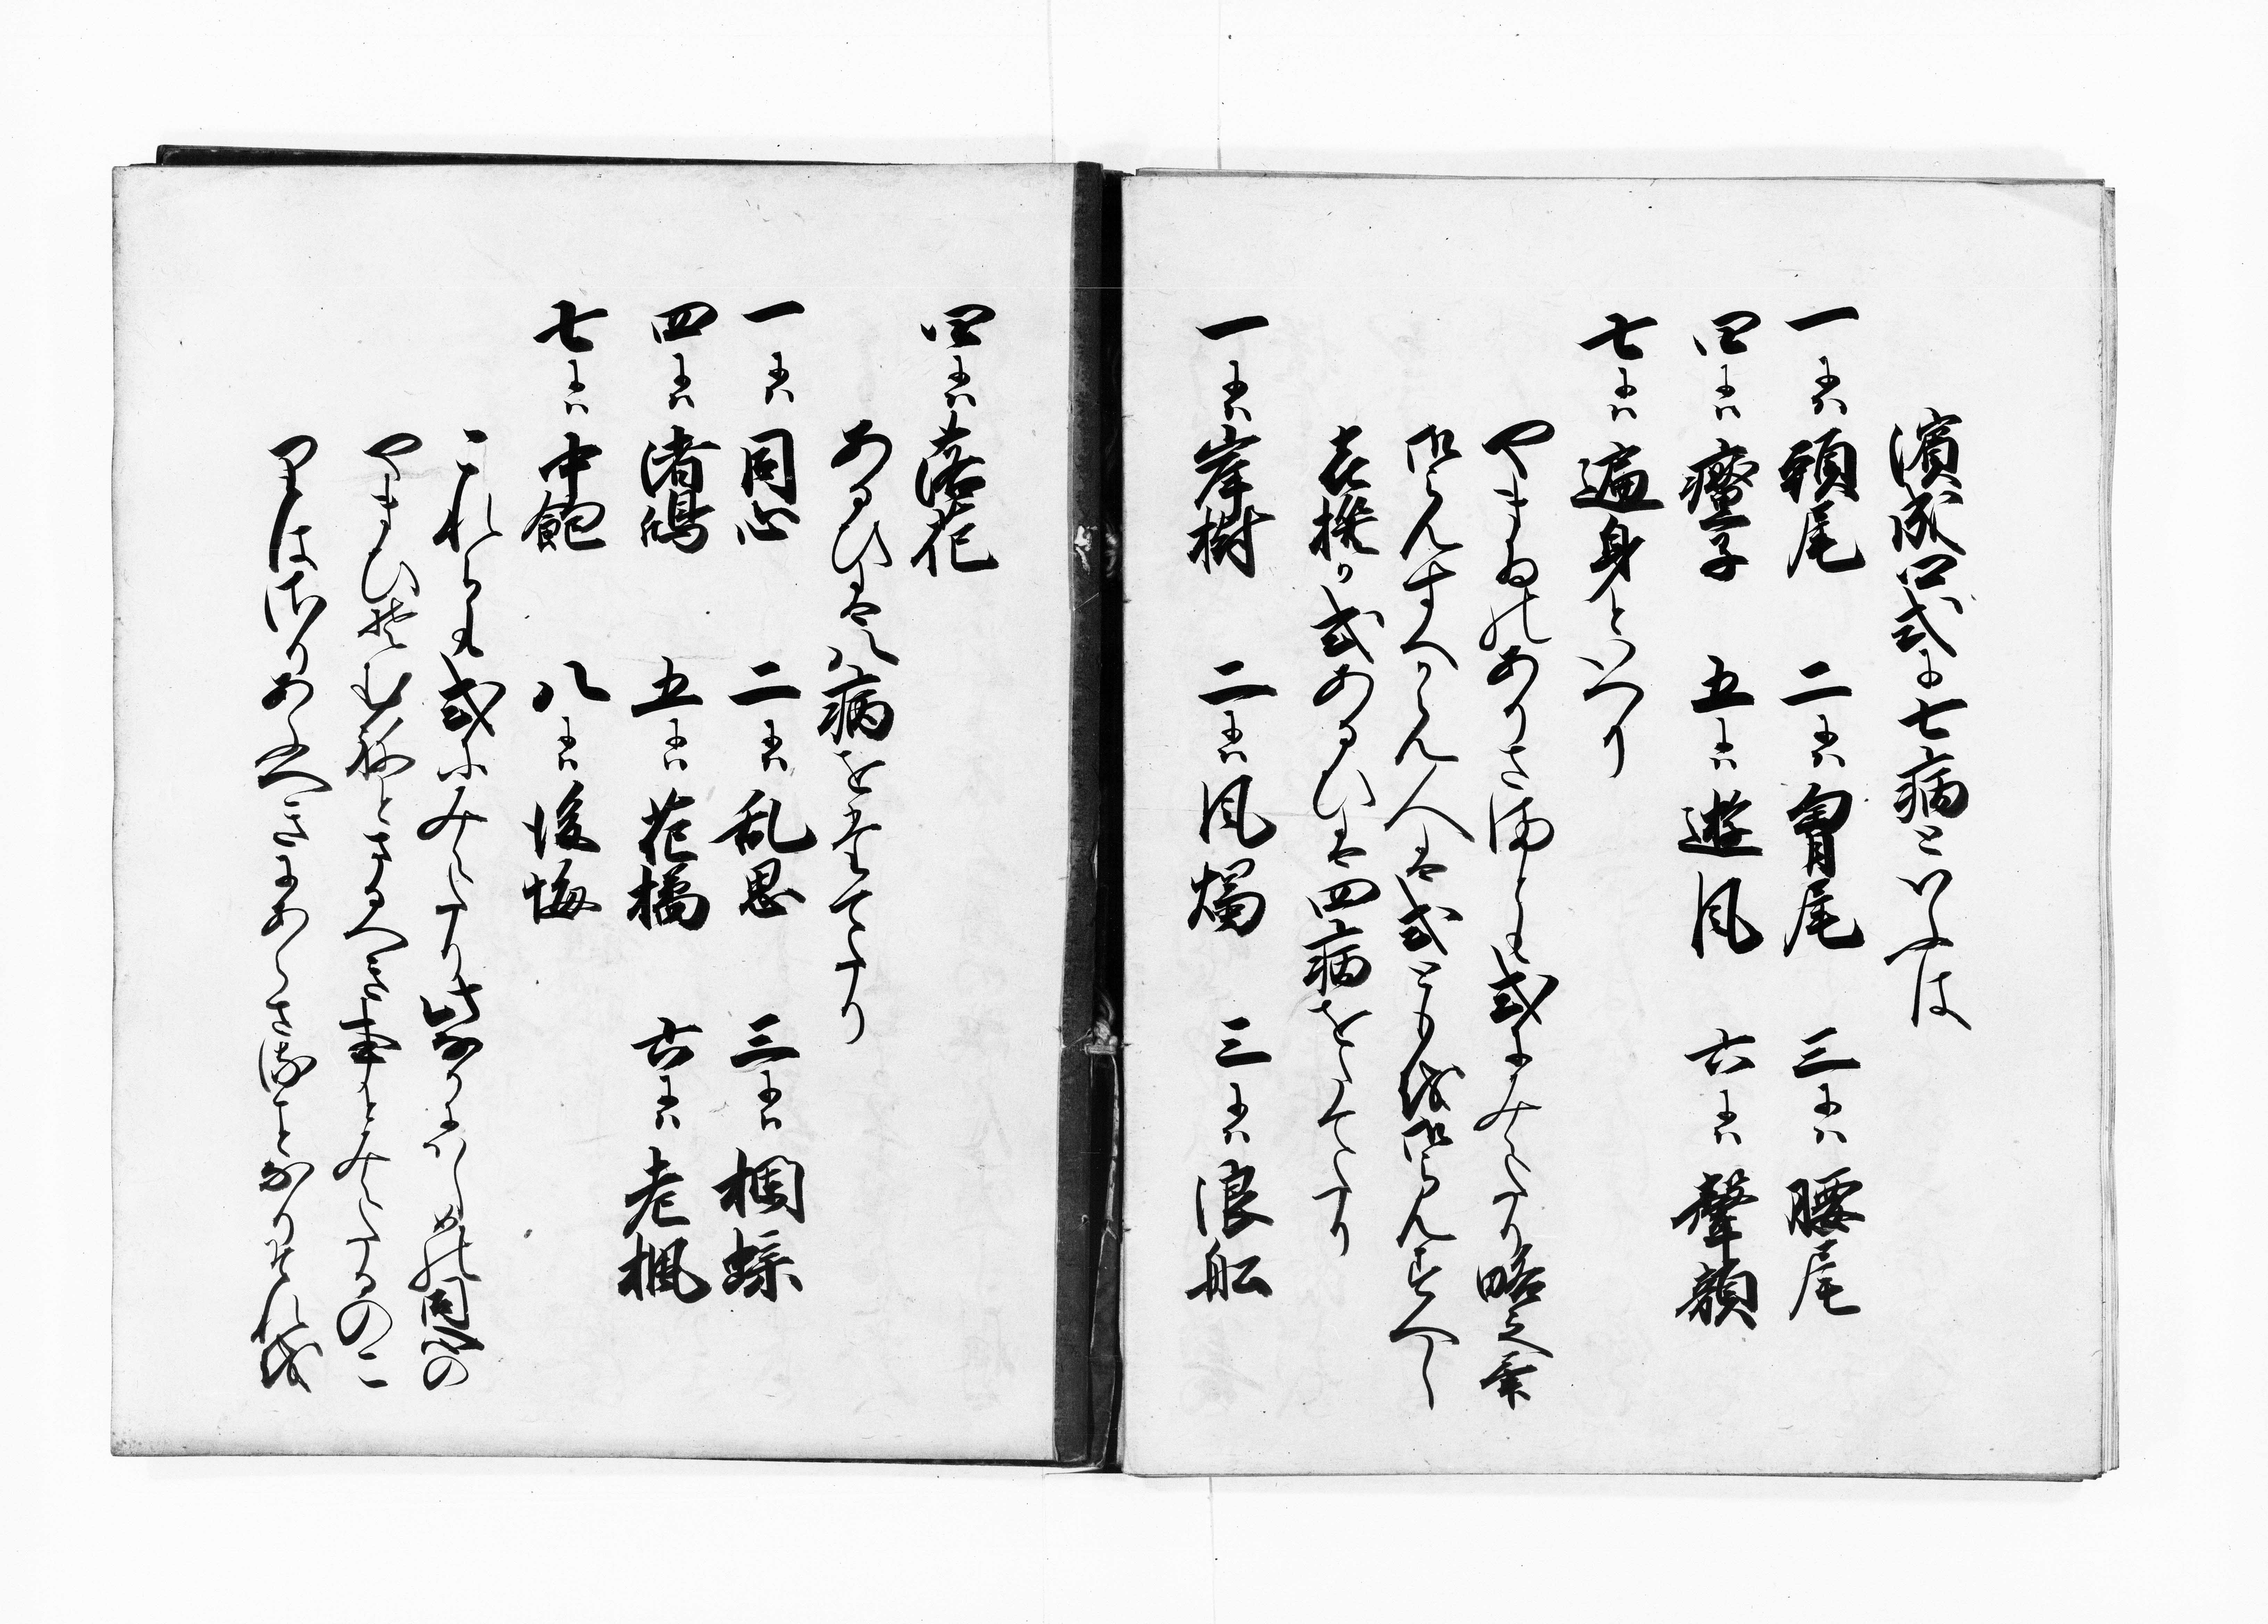 濱成か式に七病といふは
一には頭尾　二には胷尾　三には腰尾
四には黶子　五には遊風　六には聲韻
七には遍身といへり
やまゐのありさまとも式にみえたり略之畢
御らんすへからん人は式ともを御らんすへし
喜撰か式あるひは四病をたてたり
一には岸樹　二には風燭　三には浪舩
四には落花
あるひは八病をたてたり
一には同心　二には乱思　三には欄蝶
四には渚鴻　五には花橘　六には老楓
七には中飽　八には後悔
これらも式にみえたり皆のはしめの同心の
やまひそむねとさるへき事とみえたるのこ
りはさりあふへきにあらさることなりそれを